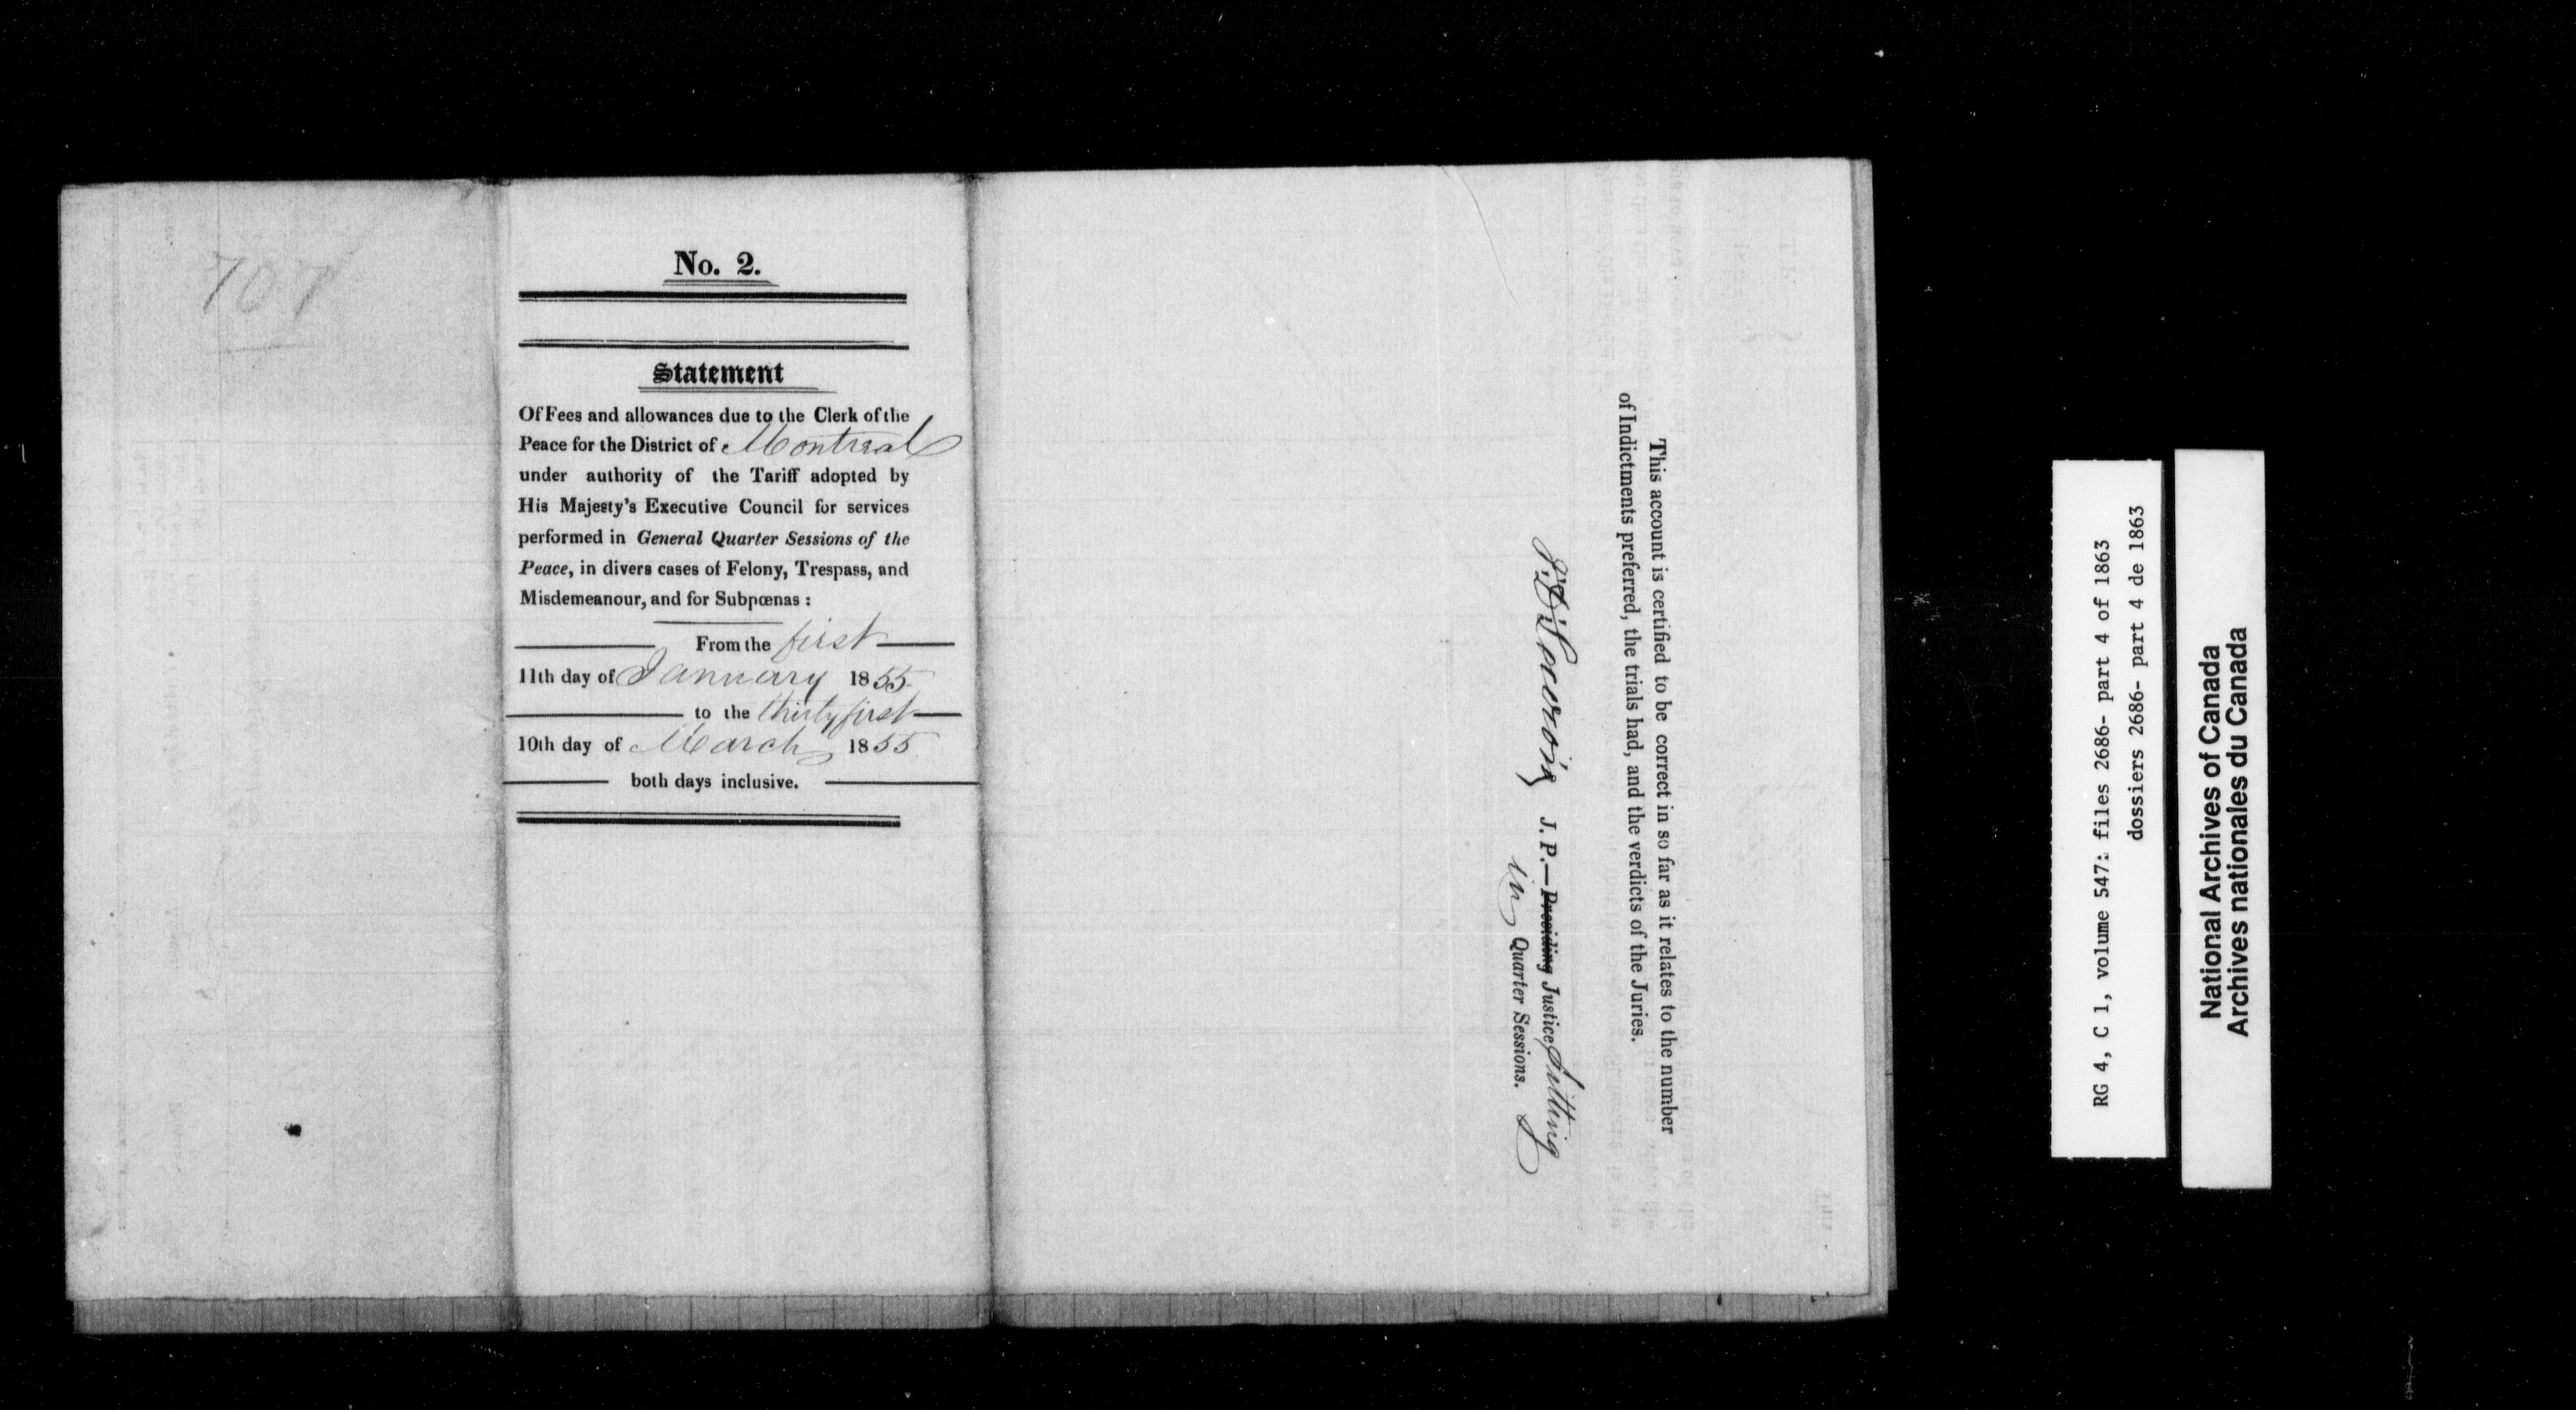 707
No. 2.
Statement
Of Fees and allowances due to the Clerk of the
Peace for the District of Montreal
under authority of the Tariff adopted by
His Majesty's Executive Council for services
performed in General Quarter Sessions of the
Peace, in divers cases of Felony, Trespass, and
Misdemeanour, and for Subpœnas :
From the first
11th day of January 1855.
to the thirty first
10th day of March 1855
both days inclusive.
This account is certified to be correct in so far as it relates to the number
of Indictments preferred, the trials had, and the verdicts of the Juries.
J. P.—Presiding Justice Sitting
in Quarter Sessions.
RG 4, C 1, volume 547: files 2686- part 4 of 1863
dossiers 2686- part 4 de 1863
National Archives of Canada
Archives nationales du Canada